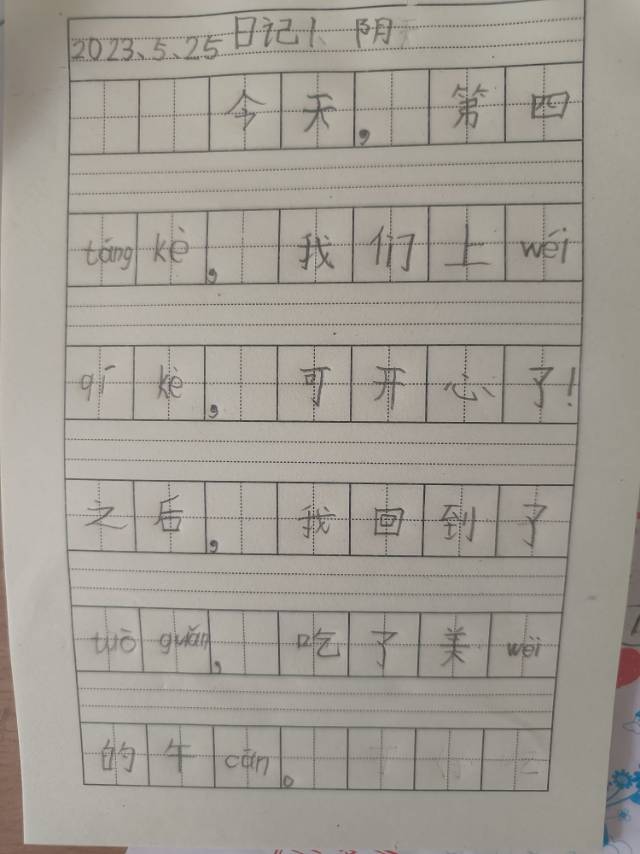 2023、5、25 日记1、阴天
今天，第四
táng kè，我们上wéi
qí kè，可开心了！
之后，我回到了
tuò guǎn，吃了美wèi
的午cān。